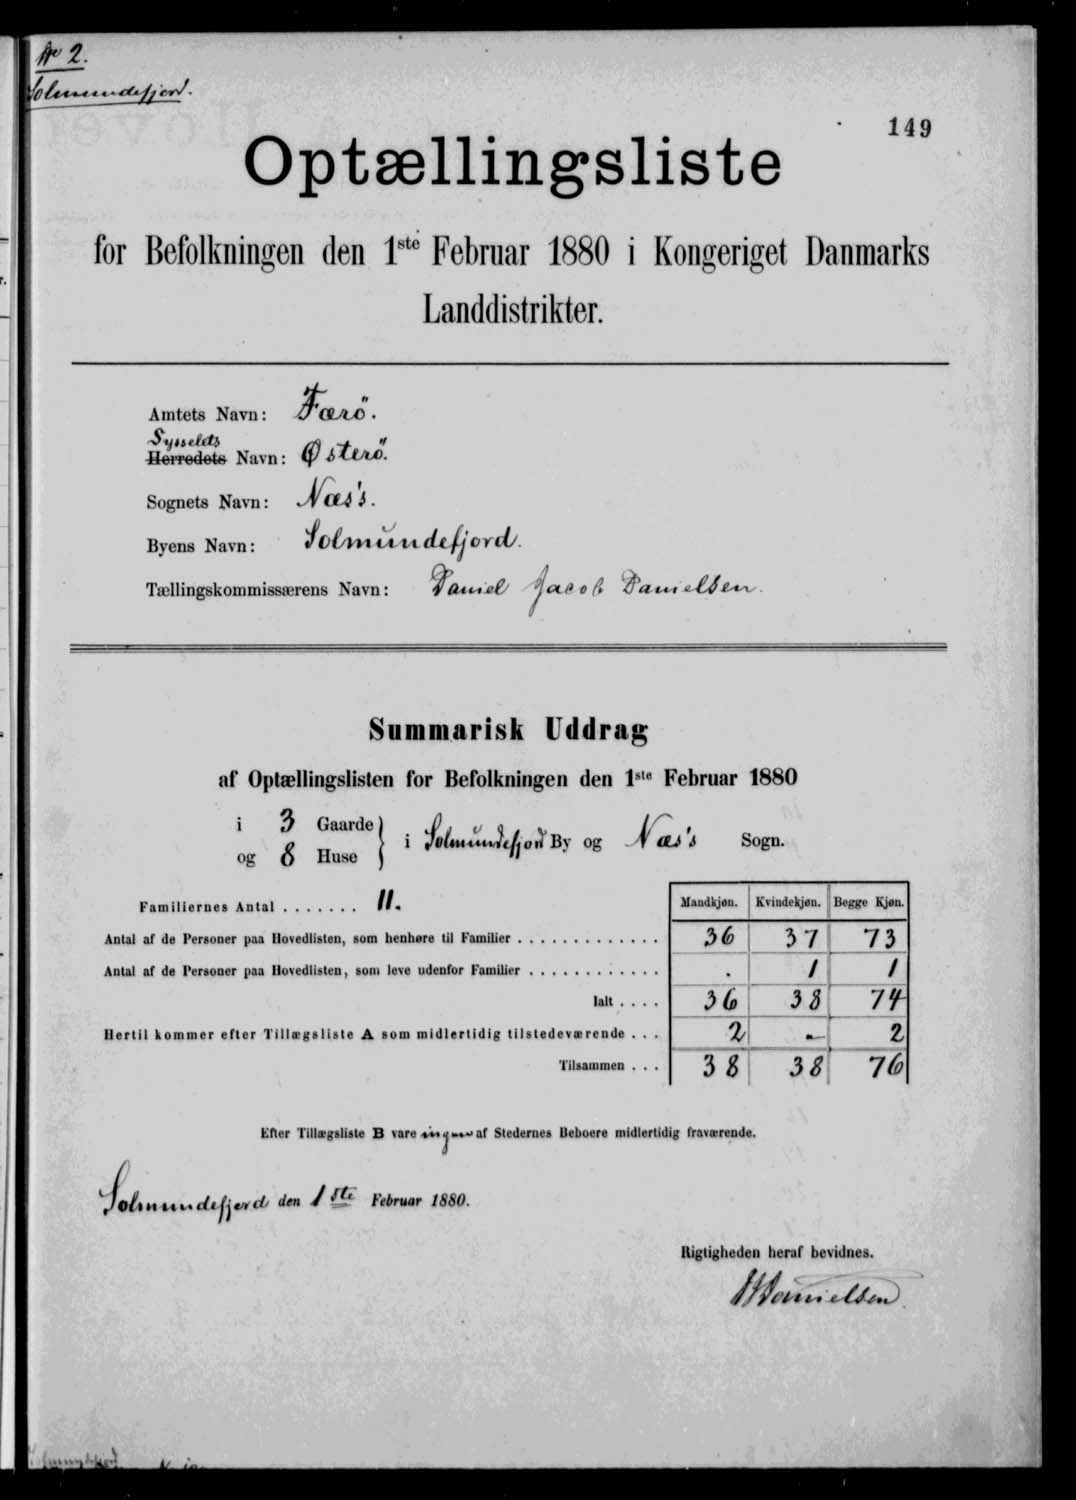 No 2.
Solmundefjord.
149
Optællingsliste
for Befolkningen den 1ste Februar 1880 i Kongeriget Danmarks
Landdistrikter.
Amtets Navn: Færö.
Sysselets
Herredets Navn: Østerö.
Sognets Navn: Næs's.
Byens Navn: Solmundefjord.
Tællingskommissærens Navn: Daniel Jacob Danielsen.
Summarisk Uddrag
af Optællingslisten for Befolkningen den 1ste Februar 1880
i 3 Gaarde
og 8 Huse } i Solmundefjord By og Næs's Sogn.
Familiernes Antal . . . . . . . 11.
Mandkjøn. Kvindekjøn. Begge Kjøn.
Antal af de Personer paa Hovedlisten, som henhøre til Familier . . . . . . . . . . . . . 36 37 73
Antal af de Personer paa Hovedlisten, som leve udenfor Familier . . . . . . . . . . . . . 1 1
Ialt . . . . 36 38 74
Hertil kommer efter Tillægsliste A som midlertidig tilstedeværende . . . 2 - 2
Tilsammen . . . 38 38 76
Efter Tillægsliste B vare ingen af Stedernes Beboere midlertidig fraværende.
Solmundefjord den 1ste Februar 1880.
Rigtigheden heraf bevidnes.
Danielsen